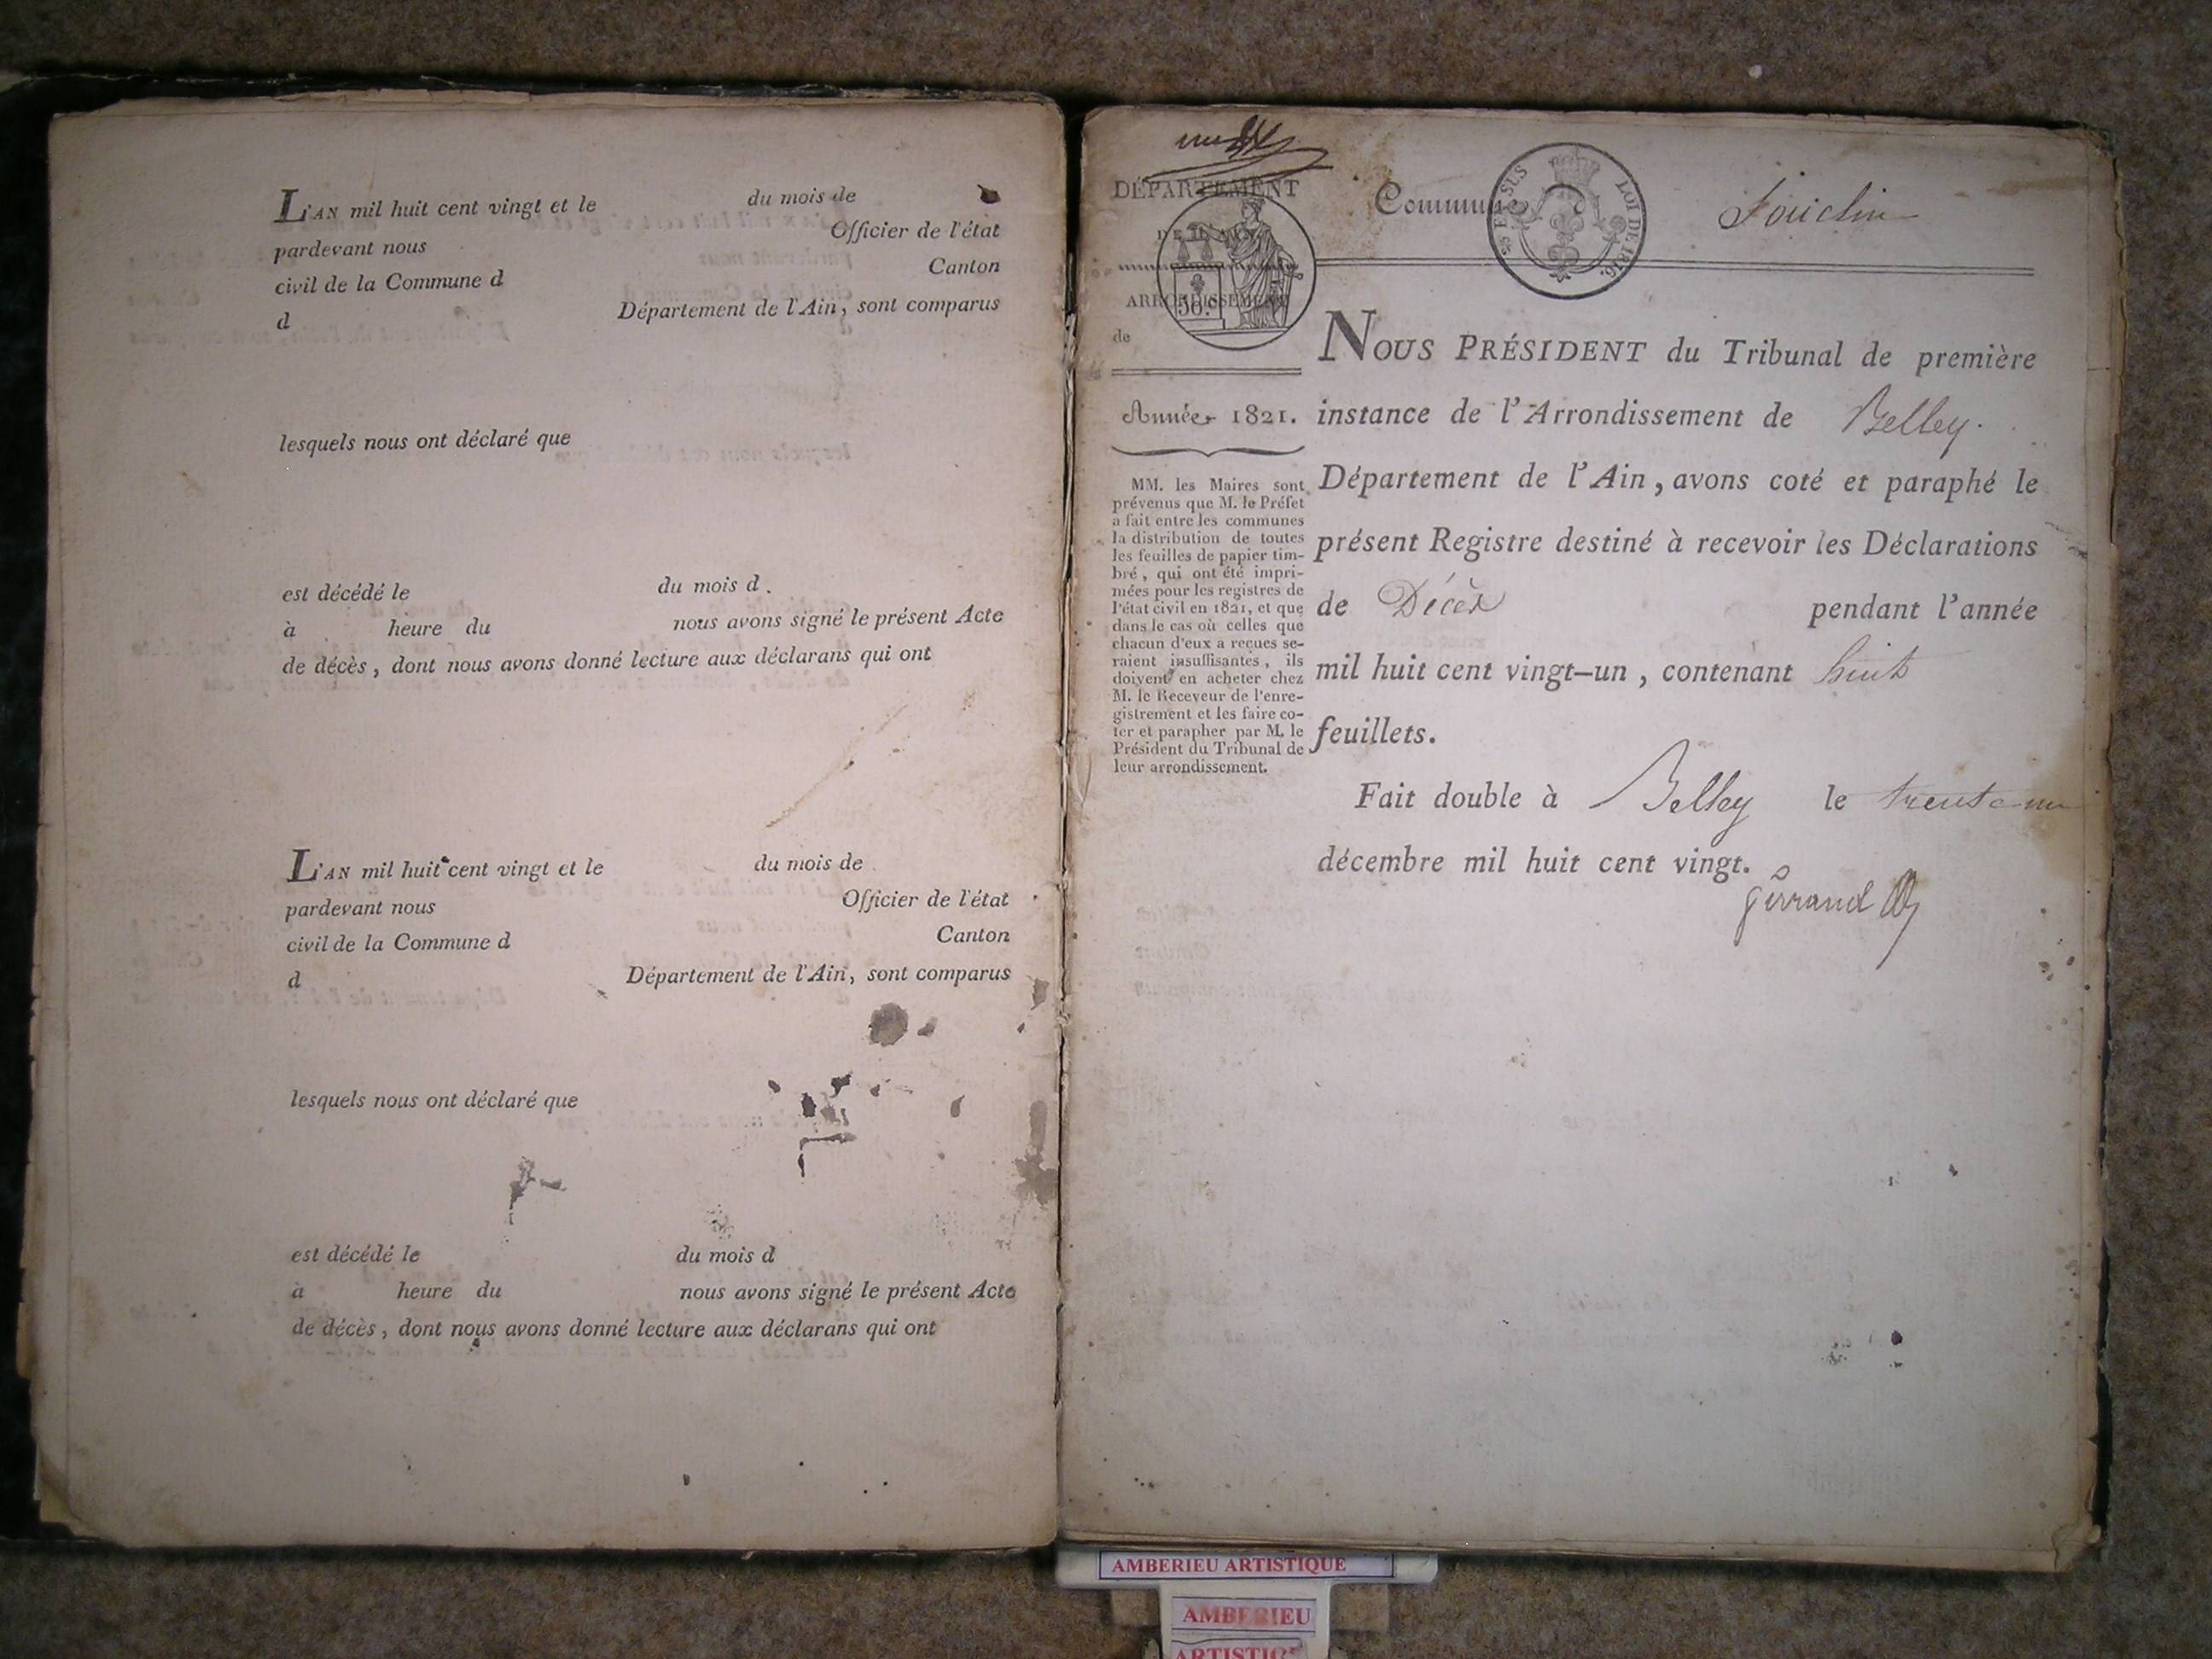 L'AN mil huit cent vingt et le du mois de
pardevant nous Officier de l'état
civil de la Commune d Canton
d Département de l'Ain, sont comparus
lesquels nous ont déclaré que
est décédé le du mois d
à heure du nous avons signé le présent Acte
de décès, dont nous avons donné lecture aux déclarans qui ont
L'AN mil huit cent vingt et le du mois de
pardevant nous Officier de l'état
civil de la Commune d Canton
d Département de l'Ain, sont comparus
lesquels nous ont déclaré que
est décédé le du mois d
à heure du nous avons signé le présent Acte
de décès, dont nous avons donné lecture aux déclarans qui ont
DÉPARTEMENT
DE L'AIN
ARRONDISSEMENT
de
Année 1821.
MM. les Maires sont
prévenus que M. le Préfet
a fait entre les communes
la distribution de toutes
les feuilles de papier tim-
bré, qui ont été impri-
mées pour les registres de
l'état civil en 1821, et que
dans le cas où celles que
chacun d'eux a reçues se-
raient insuffisantes, ils
doivent en acheter chez
M. le Receveur de l'enre-
gistrement et les faire co-
ter et parapher par M. le
Président du Tribunal de
leur arrondissement.
Commune
LOI DE 1816.
NOUS PRÉSIDENT du Tribunal de première
instance de l'Arrondissement de Belley.
Département de l'Ain, avons coté et paraphé le
présent Registre destiné à recevoir les Déclarations
de Décès pendant l'année
mil huit cent vingt-un, contenant huit
feuillets.
Fait double à Belley le trente un
décembre mil huit cent vingt.
AMBERIEU ARTISTIQUE
AMBERIEU
ARTISTIQ